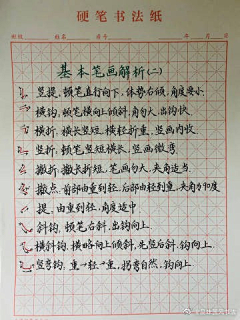 硬笔书法纸
班级: 姓名: 学号: 年 月 日
基本笔画解析(二)
竖提,顿笔直行向下,体势右倾,角度要小
横钩,顿笔横向上倾斜,角勿大,出钩快.
横折,横长竖短,横轻折重,竖画内收.
竖折,顿笔竖短横长,竖画微弯.
撇折,撇长折短,笔画勿大,夹角适当.
撇点,前部由重到轻,后部由轻到重,夹角90度
提,由重到轻,角度适中.
斜钩,顿笔右斜,出钩向上.
横斜钩,横略向上倾斜,先竖后斜,钩向上.
竖弯钩,重→轻→重,拐弯自然,钩向上.